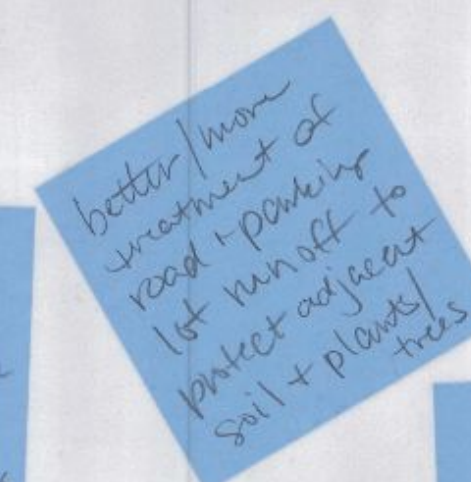 better/more
treatment of
road + parking
lot run off to
protect adjacent
soil + plants/
trees